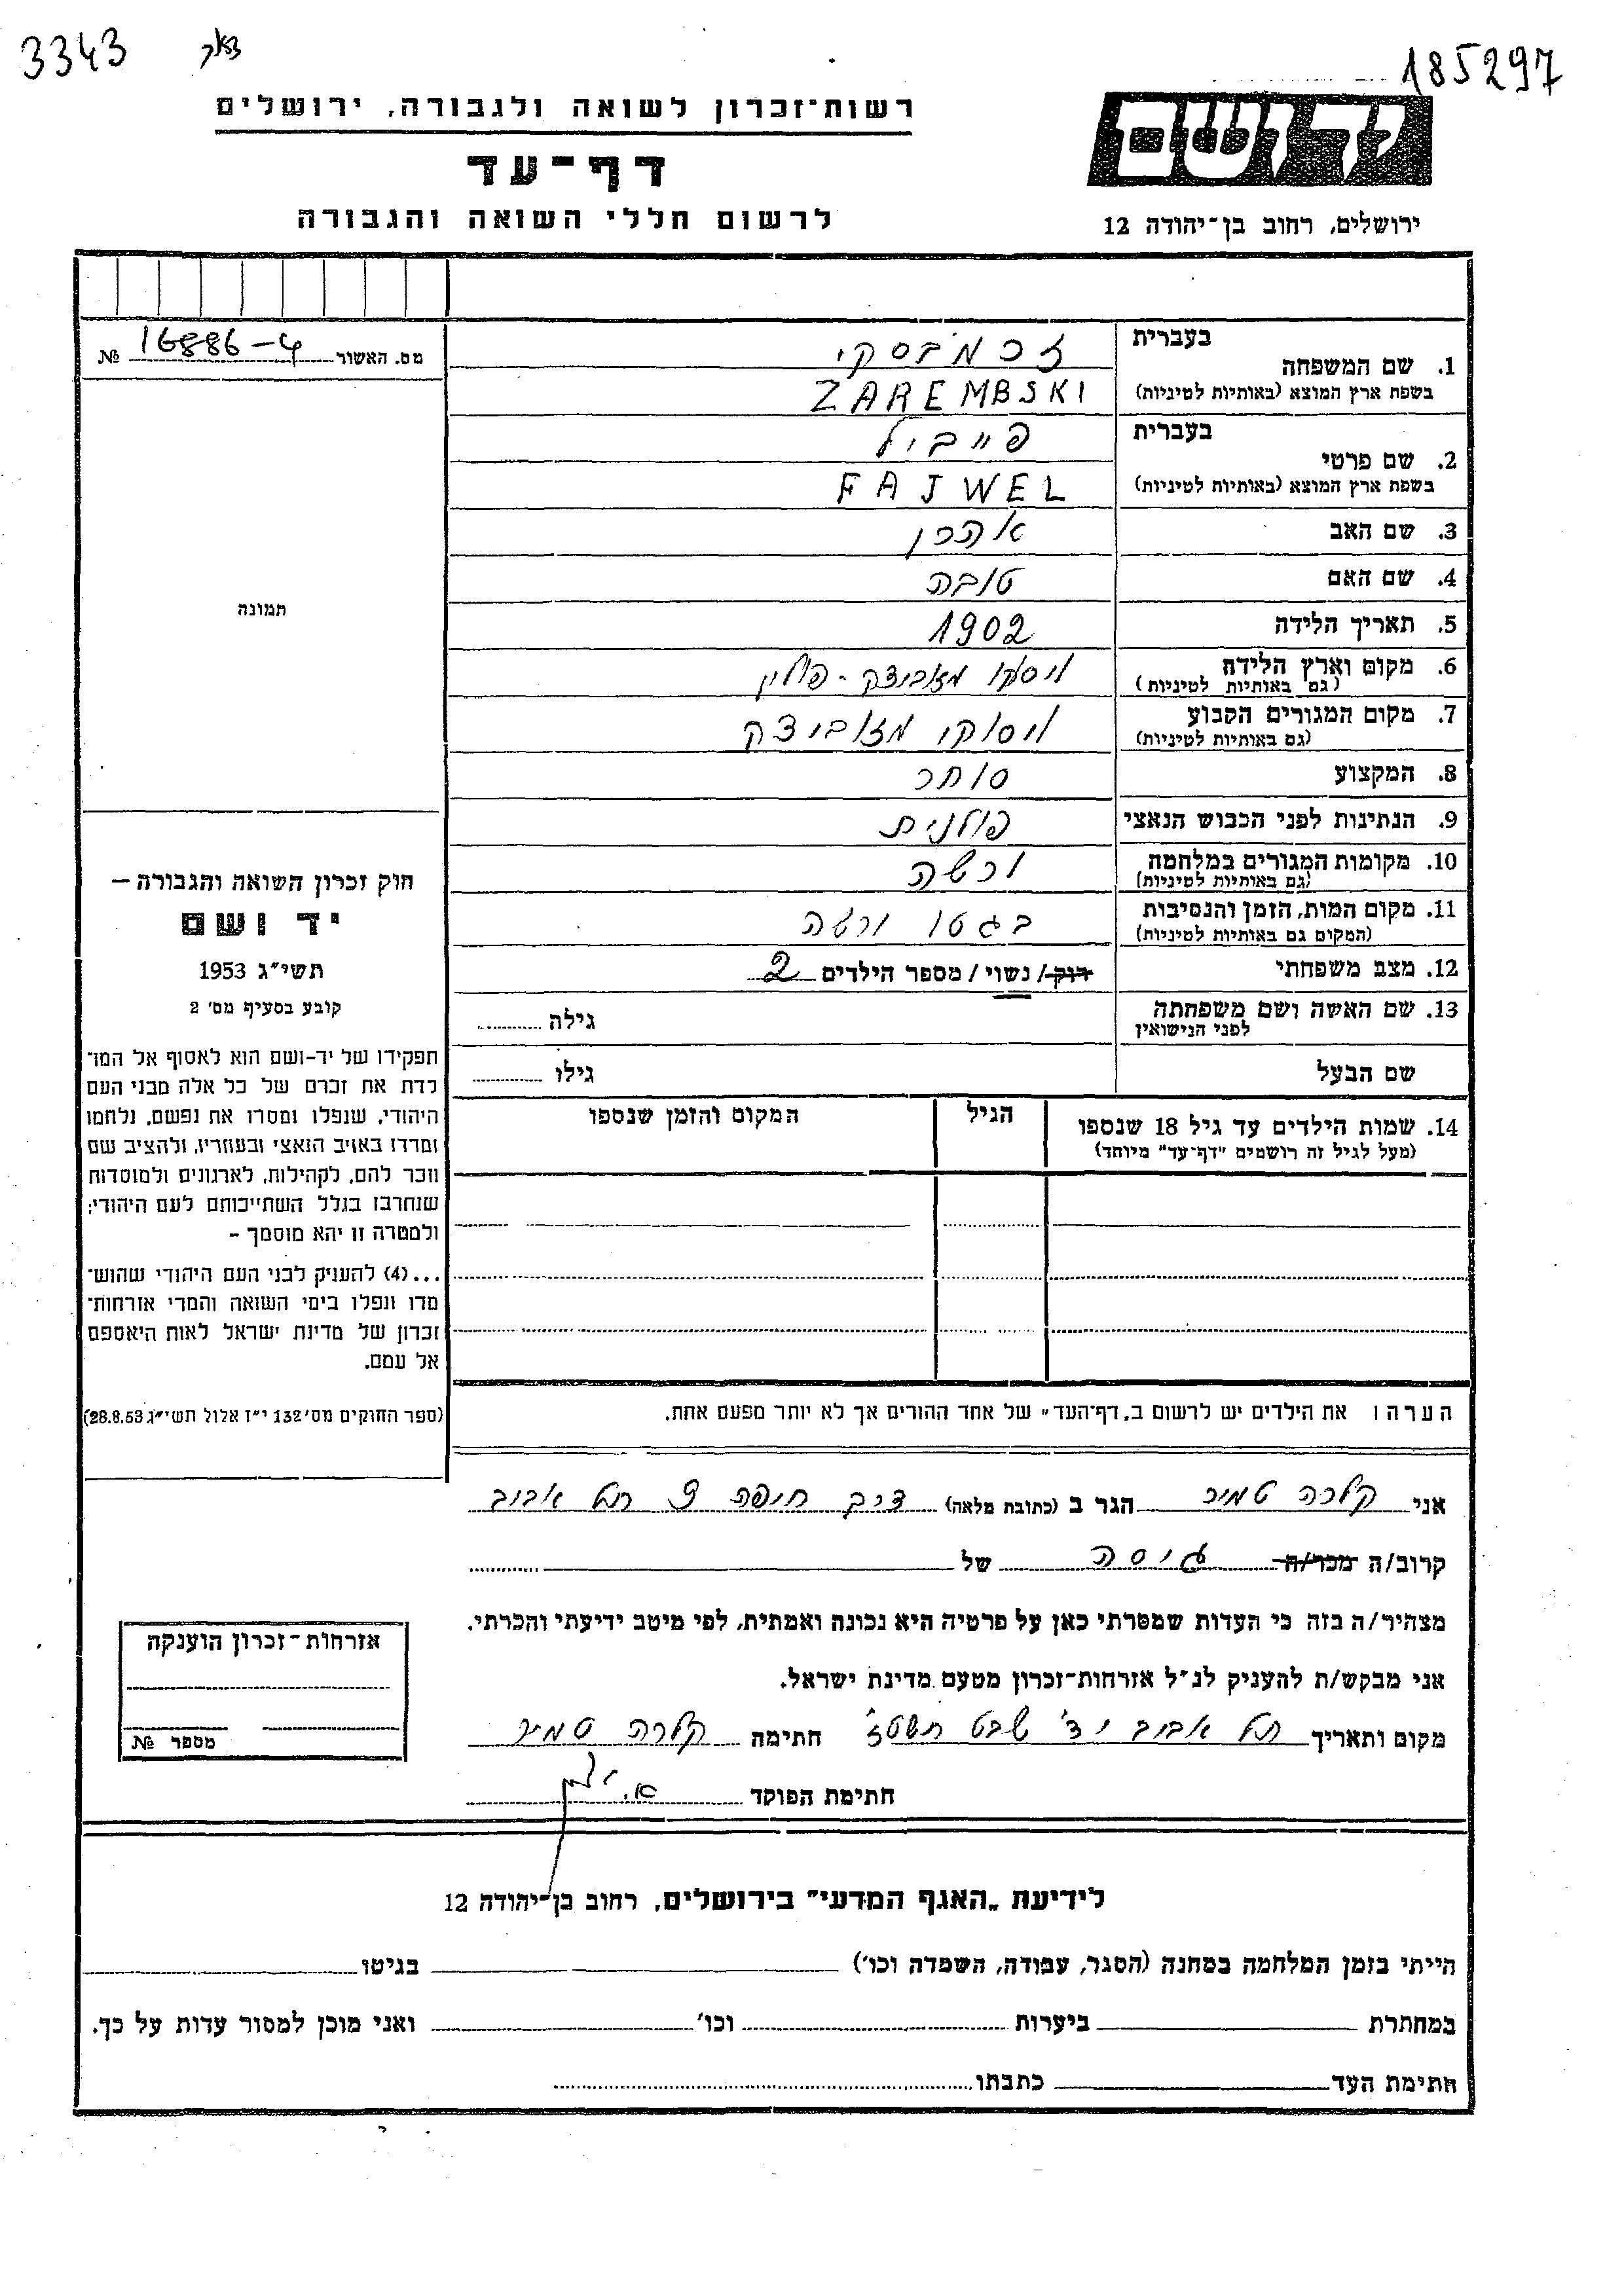 3343
185297
רשות־זכרון לשואה ולגבורה, ירושלים
דף־עד
לרשום חללי השואה והגבורה
ידושם
ירושלים, רחוב בן־יהודה 12
מס. האשור 16886-4 №
תמונה
בעברית
1. שם המשפחה זרמבסקי
בשפת ארץ המוצא (באותיות לטיניות) ZAREMBSKI
בעברית
2. שם פרטי פייביל
בשפת ארץ המוצא (באותיות לטיניות) FAJWEL
3. שם האב אהרן
4. שם האם טובה
5. תאריך הלידה 1902
6. מקום וארץ הלידה ויסקו מזוביצק - פולין
(גם באותיות לטיניות)
7. מקום המגורים הקבוע ויסוקי מזוביצק
(גם באותיות לטיניות)
8. המקצוע סוחר
9. הנתינות לפני הכבוש הנאצי פולנית
10. מקומות המגורים במלחמה ורשה
(גם באותיות לטיניות)
11. מקום המות, הזמן והנסיבות בגטו ורשה
(המקום גם באותיות לטיניות)
12. מצב משפחתי רוק/ נשוי / מספר הילדים 2
13. שם האשה ושם משפחתה גילה
לפני הנישואין
שם הבעל גילו
14. שמות הילדים עד גיל 18 שנספו הגיל המקום והזמן שנספו
(מעל לגיל זה רושמים "דף־עד" מיוחד)
הערה: את הילדים יש לרשום ב„דף־העד" של אחד ההורים אך לא יותר מפעם אחת.
חוק זכרון השואה והגבורה —
יד ושם
תשי"ג 1953
קובע בסעיף מס' 2
תפקידו של יד-ושם הוא לאסוף אל המו־
לדת את זכרם של כל אלה מבני העם
היהודי, שנפלו ומסרו את נפשם, נלחמו
ומרדו באויב הנאצי ובעוזריו, ולהציב שם
וזכר להם, לקהילות, לארגונים ולמוסדות
שנחרבו בגלל השתייכותם לעם היהודי;
ולמטרה זו יהא מוסמך -
...(4) להעניק לבני העם היהודי שהוש־
מדו ונפלו בימי השואה והמרי אזרחות־
זכרון של מדינת ישראל לאות היאספם
אל עמם.
(ספר החוקים מס' 132 י"ז אלול תשי"ג 28.8.53)
אני קלרה טמיר הגר ב (כתובת מלאה) דרך חיפה 9 תל אביב
קרוב/ה מכר/ה גיסה של
מצהיר/ה בזה כי העדות שמסרתי כאן על פרטיה היא נכונה ואמתית, לפי מיטב ידיעתי והכרתי.
אני מבקש/ת להעניק לנ"ל אזרחות־זכרון מטעם מדינת ישראל.
מקום ותאריך תל אביב יד' שבט תשטז חתימה קלרה טמיר
חתימת הפוקד
אזרחות־זכרון הוענקה
מספר №
לידיעת „האגף המדעי" בירושלים, רחוב בן־יהודה 12
הייתי בזמן המלחמה במחנה (הסגר, עבודה, השמדה וכו') בגיטו
במחתרת ביערות וכו' ואני מוכן למסור עדות על כך.
חתימת העד כתבתו